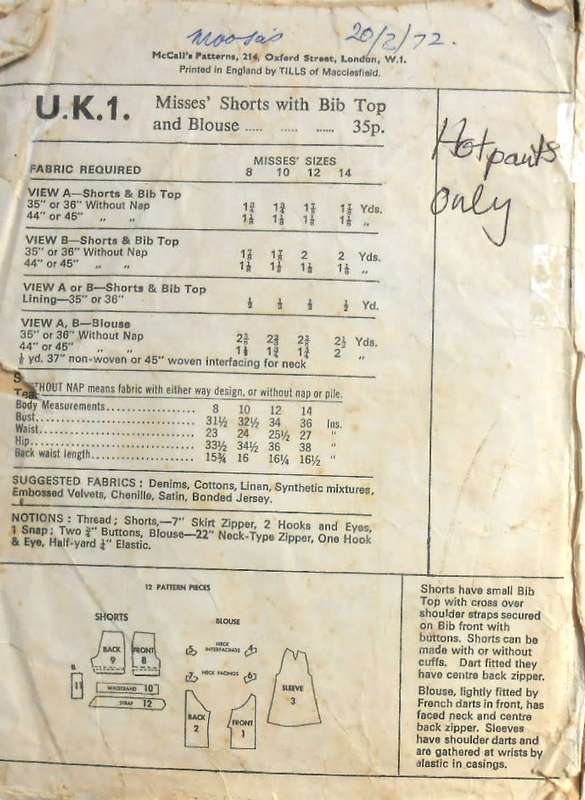 Moosa's 20/2/72.
McCall's Patterns, 214, Oxford Street, London, W.1.
Printed in England by TILLS of Macclesfield.
U.K.1. Misses' Shorts with Bib Top
and Blouse ..... ...... ...... 35p.
Hotpants
only
MISSES' SIZES
FABRIC REQUIRED 8 10 12 14
VIEW A—Shorts & Bib Top
35" or 36" Without Nap 1¾ 1¾ 1⅞ 1⅞ Yds.
44" or 45" „ „ 1⅛ 1⅛ 1⅛ 1⅛ „
VIEW B—Shorts & Bib Top
35" or 36" Without Nap 1⅞ 1⅞ 2 2 Yds.
44" or 45" „ „ „
VIEW A or B—Shorts & Bib Top
Lining—35" or 36" Yd.
VIEW A, B—Blouse
35" or 36" Without Nap 2½ Yds.
44" or 45" „ 1¾ 1¾ 2 „
yd. 37" non-woven or 45" woven interfacing for neck
S
WITHOUT NAP means fabric with either way design, or without nap or pile.
Body Measurements.................... 8 10 12 14
Bust.................... 31½ 32½ 34 36 Ins.
Waist.................... 23 24 25½ 27 "
Hip.................... 33½ 34½ 36 38 "
Back waist length.................... 15¾ 16 16¼ 16½ "
SUGGESTED FABRICS : Denims, Cottons, Linen, Synthetic mixtures,
Embossed Velvets, Chenille, Satin, Bonded Jersey.
NOTIONS : Thread ; Shorts,—7" Skirt Zipper, 2 Hooks and Eyes,
1 Snap ; Two ¾" Buttons, Blouse—22" Neck-Type Zipper, One Hook
& Eye, Half-yard ¼" Elastic.
12 PATTERN PIECES
SHORTS
BLOUSE
BACK
9
FRONT
8
11
WAISTBAND 10
STRAP 12
5 NECK INTERFACINGS 4
7 NECK FACINGS 6
BACK
2
FRONT
1
SLEEVE
3
Shorts have small Bib
Top with cross over
shoulder straps secured
on Bib front with
buttons. Shorts can be
made with or without
cuffs. Dart fitted they
have centre back zipper.
Blouse, lightly fitted by
French darts in front, has
faced neck and centre
back zipper. Sleeves
have shoulder darts and
are gathered at wrists by
elastic in casings.